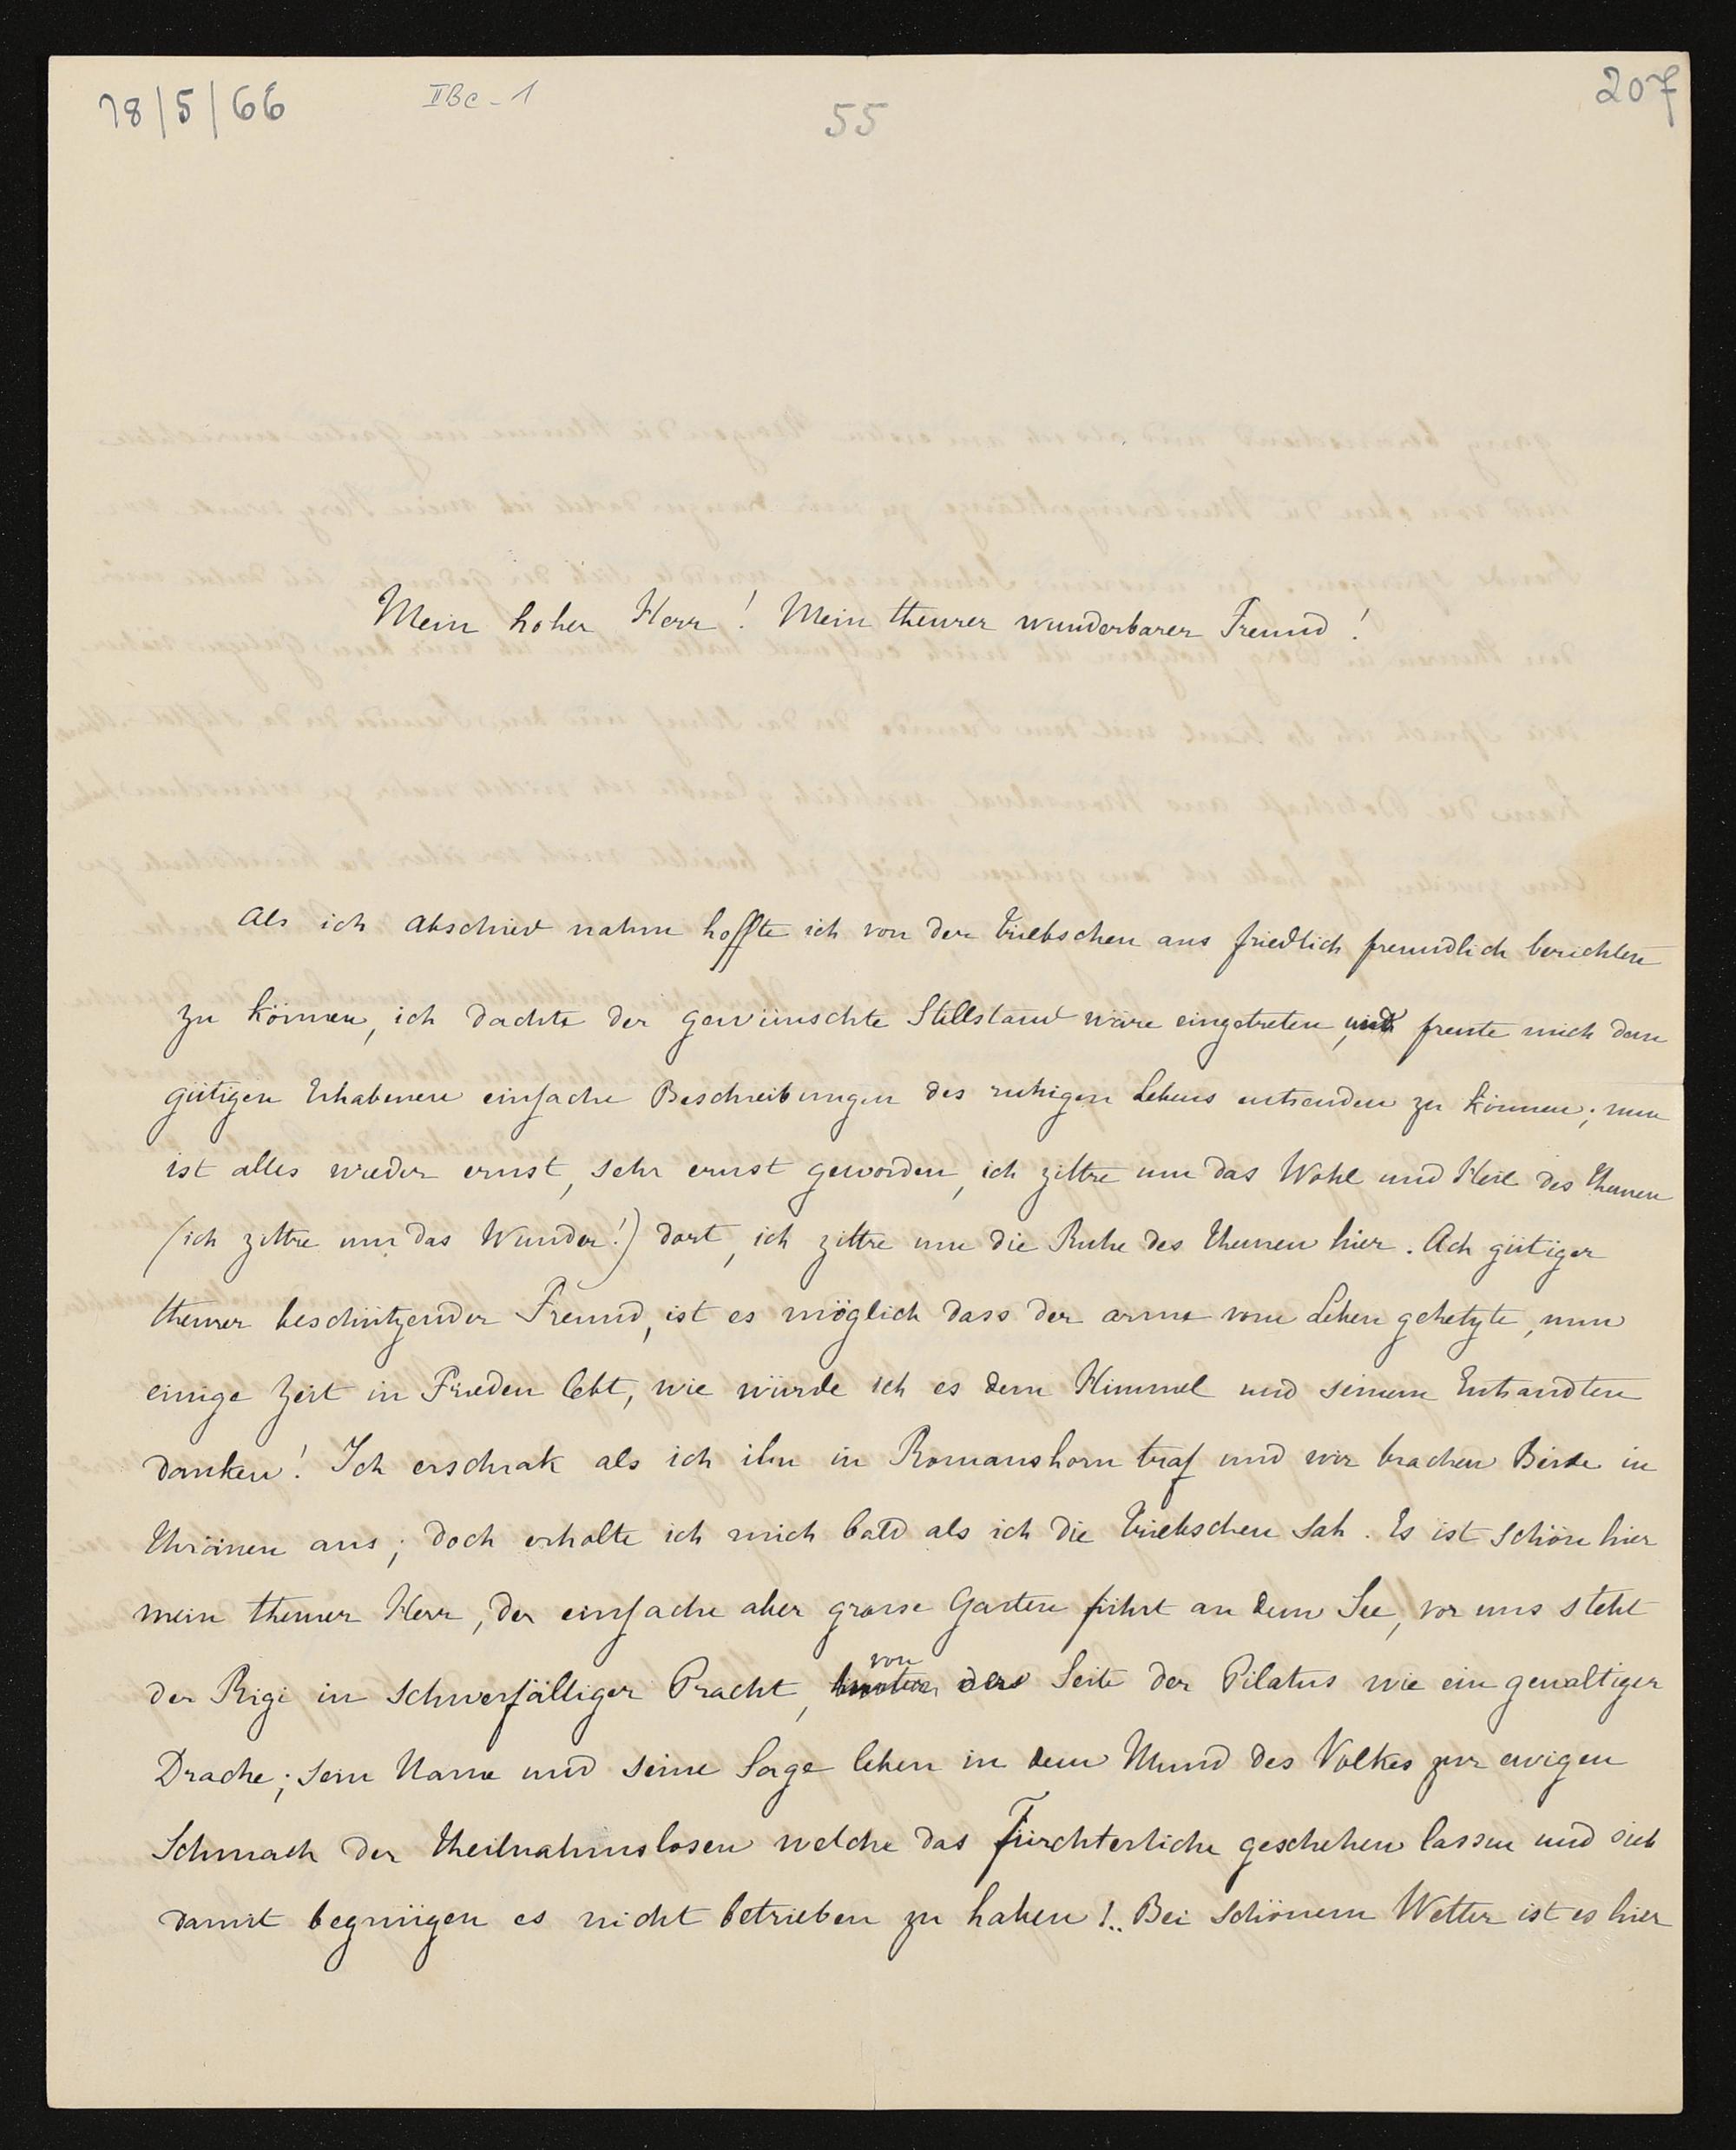 18/5/66 IIBc-1 55 207
Mein hoher Herr! Mein theurer wunderbarer Freund!
Als ich Abschied nahm hoffte ich von der Triebschen aus friedlich freundlich berichten
zu können, ich dachte der gewünschte Stillstand wäre eingetreten, und freute mich dem
gütigen Erhabenen einfache Beschreibungen des ruhigen Lebens entsenden zu können; nun
ist alles wieder ernst, sehr ernst geworden, ich zittre um das Wohl und Heil des Theuren
(ich zittre um das Wunder!) dort, ich zittre um die Ruhe des Theuren hier. Ach gütiger
theurer beschützender Freund, ist es möglich dass der arme vom Leben gehetzte, nun
einige Zeit in Frieden lebt, wie würde ich es dem Himmel und seinem Entsandten
danken! Ich erschrak als ich ihn in Romanshorn traf und wir brachen Beide in
Thränen aus; doch erholte ich mich bald als ich die Triebschen sah. Es ist schön hier
mein theurer Herr, der einfache aber grosse Garten führt an dem See, vor uns steht
der Rigi in schwerfälliger Pracht, von der Seite der Pilatus wie ein gewaltiger
Drache; sein Name und seine Sage leben in dem Mund des Volkes zur ewigen
Schmach der Theilnahmslosen welche das Fürchterliche geschehen lassen und sich
damit begnügen es nicht betrieben zu haben!.. Bei schönem Wetter ist es hier